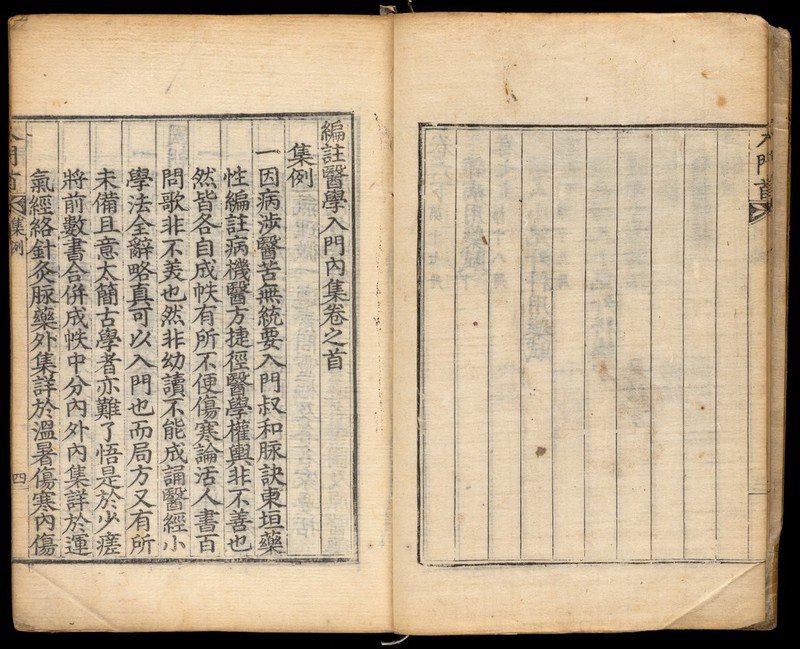 入門首
編註醫學入門內集卷之首
集例
一因病涉醫苦無統要入門叔和脉訣東垣藥
性編註病機醫方捷徑醫學權輿非不善也
然皆各自成帙有所不便傷寒論活人書百
問歌非不美也然非幼讀不能成誦醫經小
學法全辭略真可以入門也而局方又有所
未備且意太簡古學者亦難了悟是於少瘥
將前數書合併成帙中分內外內集詳於運
氣經絡針灸脉藥外集詳於溫暑傷寒內傷
入門首 集例 四